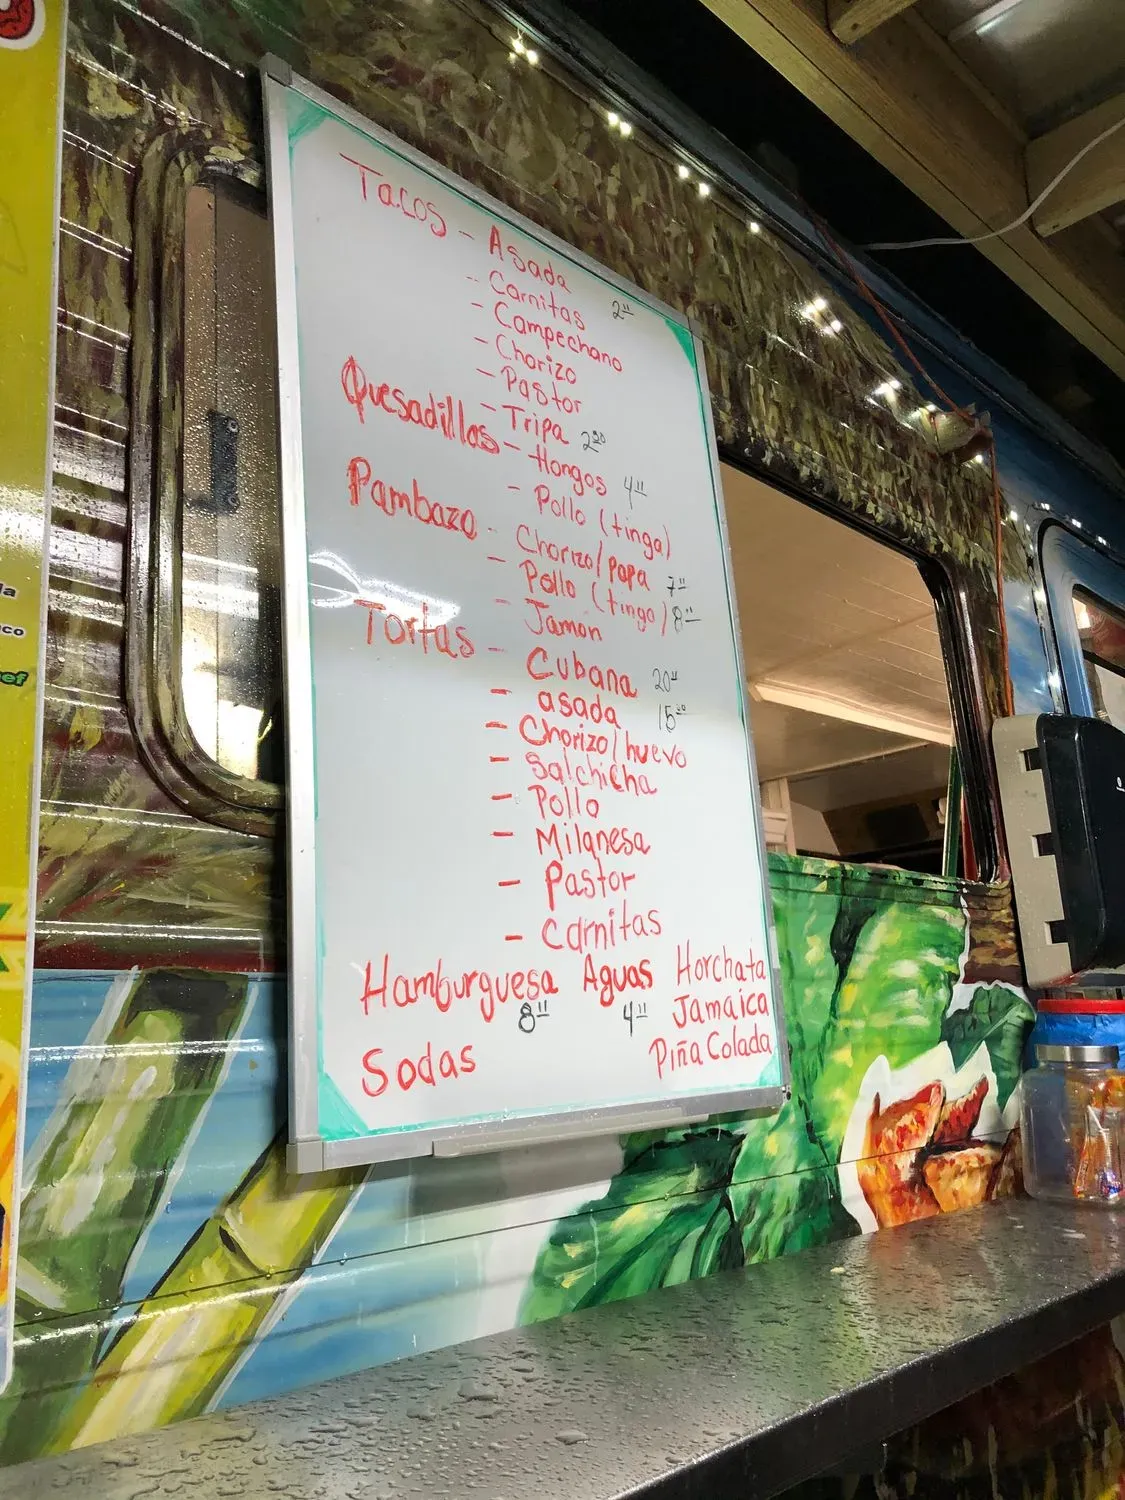 Tacos - Asada
- Carnitas 2"
- Campechano
- Chorizo
- Pastor
- Tripa 2⁵⁰
Quesadillas - Hongos 4"
- Pollo (tinga)
Pambazo - Chorizo/papa 7"
- Pollo (tinga) 8"
- Jamon
Tortas - Cubana 20"
- asada 15⁰⁰
- Chorizo/huevo
- Salchicha
- Pollo
- Milanesa
- Pastor
- Carnitas
Hamburguesa 8" Aguas 4" Horchata
Jamaica
Sodas Piña Colada